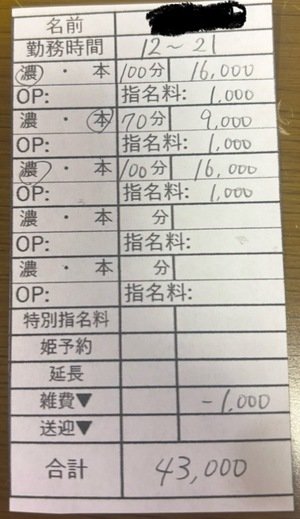 名前
勤務時間 12～21
濃・本 100分 16,000
OP: 指名料: 1,000
濃・本 70分 9,000
OP: 指名料: 1,000
濃・本 100分 16,000
OP: 指名料: 1,000
濃・本 分
OP: 指名料:
濃・本 分
OP: 指名料:
特別指名料
姫予約
延長
雑費▼ -1,000
送迎▼
合計 43,000